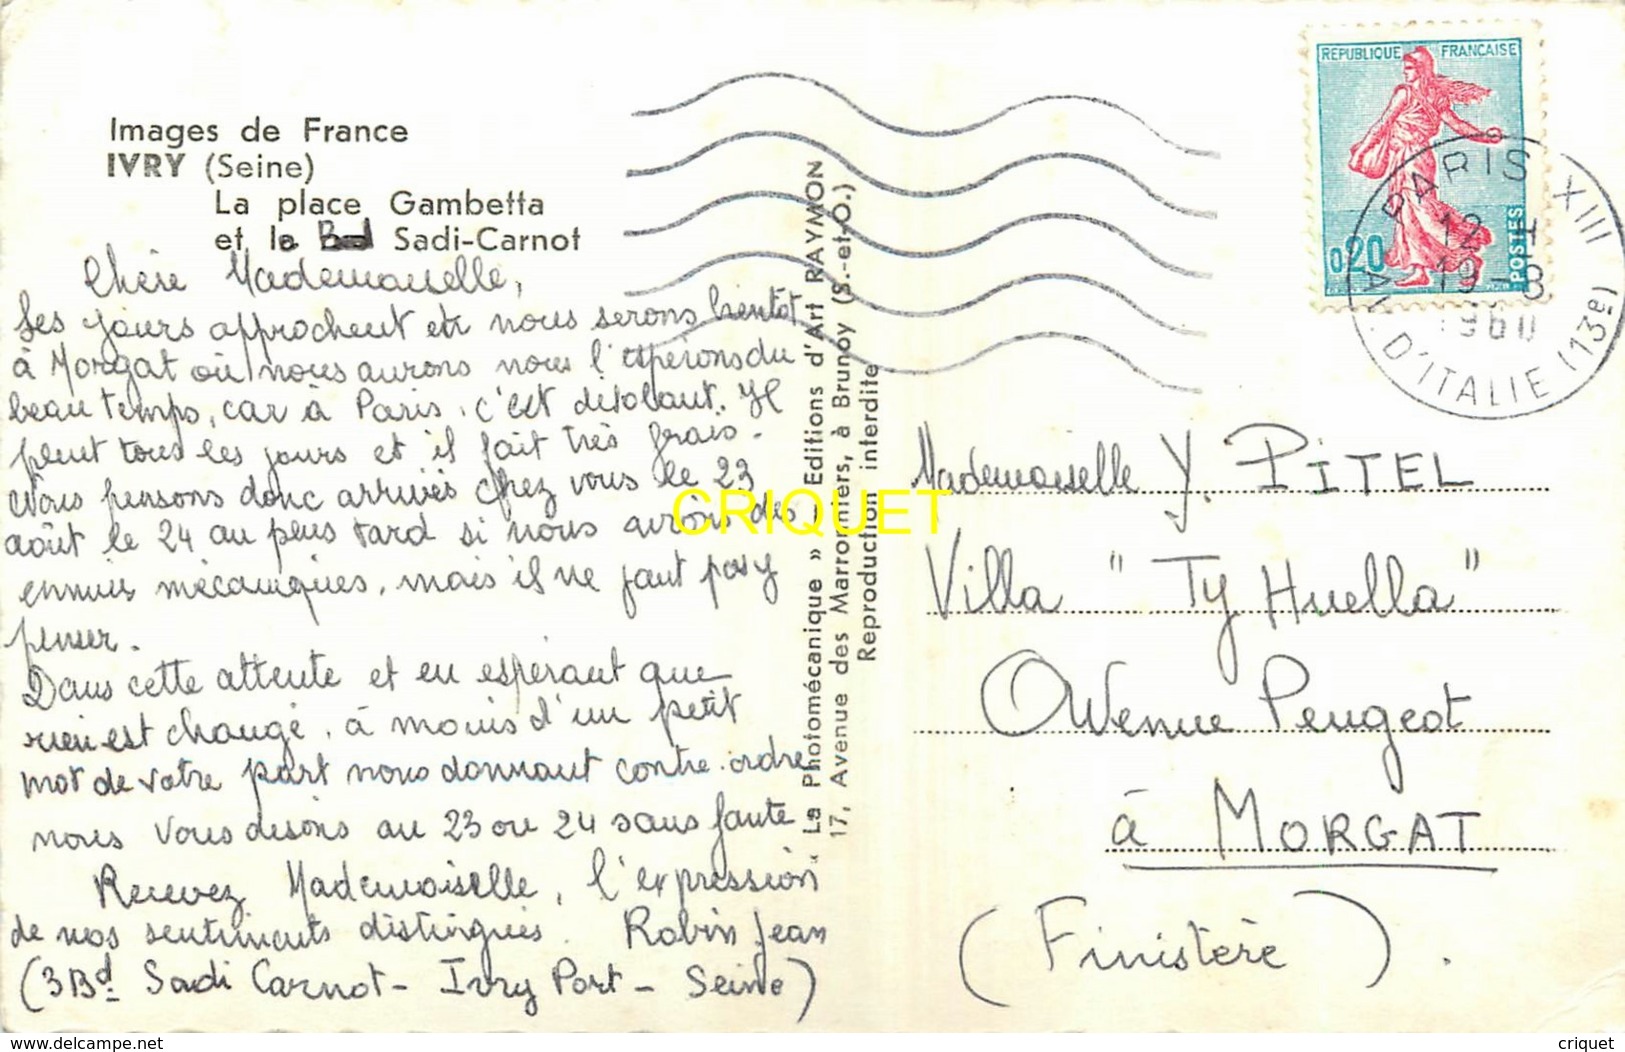 Images de France
IVRY (Seine)
La place Gambetta
et le Bd Sadi-Carnot
Chère Mademoiselle,
Les jours approchent et nous serons bientôt
à Morgat où nous aurons nous l'espérons du
beau temps, car à Paris, c'est désolant. Il
pleut tous les jours et il fait très frais.
Nous pensons donc arriver chez vous le 23
août le 24 au plus tard si nous avions des
ennuis mécaniques, mais il ne faut pas y
penser.
Dans cette attente et en espérant que
rien est changé, à moins d'un petit
mot de votre part nous donnant contre-ordre
nous vous disons au 23 ou 24 sans faute
Recevez Mademoiselle, l'expression
de nos sentiments distingués. Robin Jean
(3 Bd Sadi Carnot - Ivry Port - Seine)
« La Photomécanique » Editions d'Art RAYMON
17, Avenue des Marronniers, à Brunoy (S.-et-O.)
Reproduction interdite
CRIQUET
REPUBLIQUE FRANCAISE
0,20
POSTES
PARIS XIII
12 H
19-8
1960
AV. D'ITALIE (13e)
Mademoiselle Y. PITEL
Villa "Ty Huella"
Avenue Peugeot
à MORGAT
(Finistère).
https://www.delcampe.net
criquet